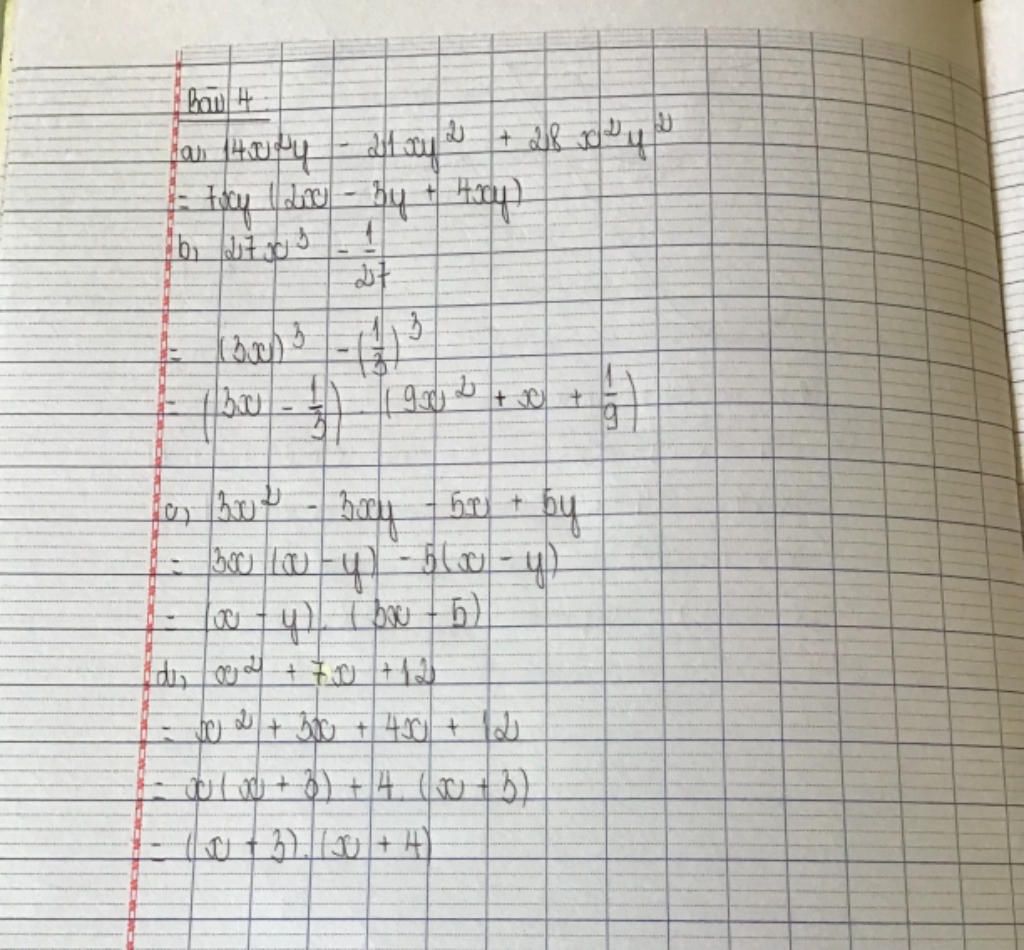 Bài 4
a, 14x²y - 21xy² + 28x²y²
= 7xy (2x - 3y + 4xy)
b, 27x³ - 1/27
= (3x)³ - (1/3)³
= (3x - 1/3) . (9x² + x + 1/9)
c, 3x² - 3xy - 5x + 5y
= 3x(x - y) - 5(x - y)
= (x - y) . (3x - 5)
d, x² + 7x + 12
= x² + 3x + 4x + 12
= x(x + 3) + 4 . (x + 3)
= (x + 3) . (x + 4)